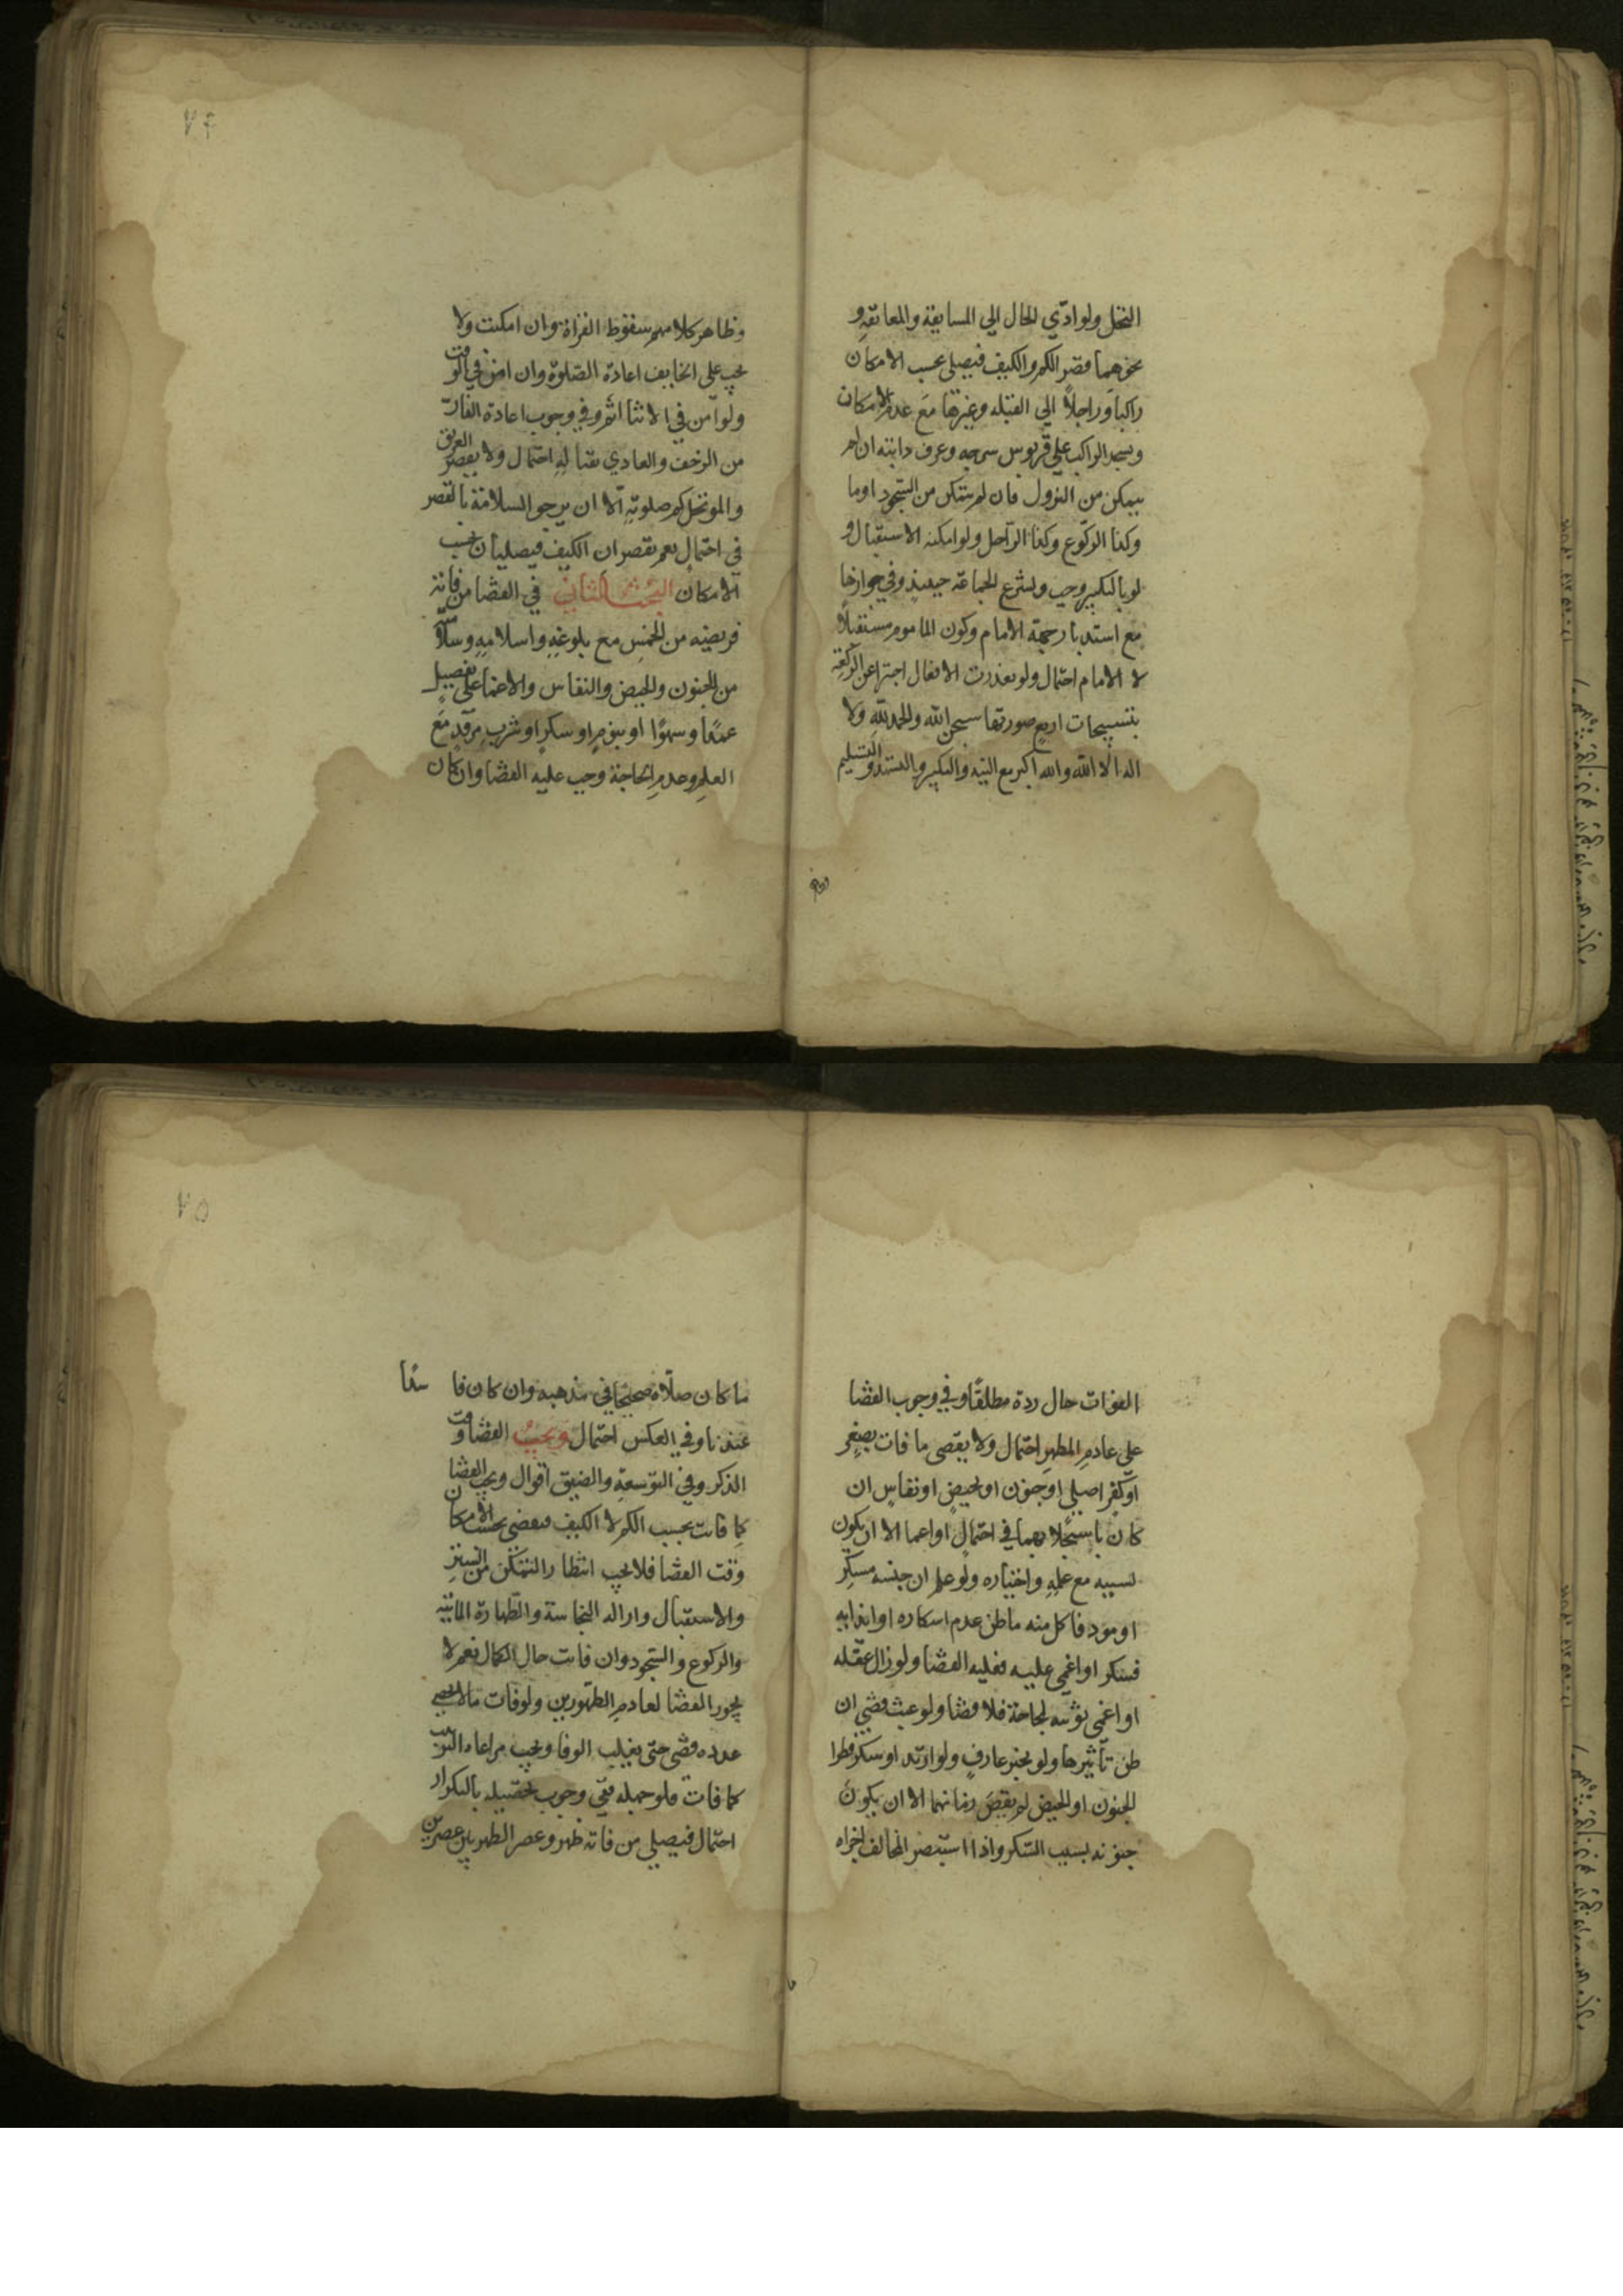 النخل ولو ادّي الحال الي المسايفة والمعانقة و
نحوهما قصر الكم والكيف فيصلي بحسب الامكان
راكبا وراجلًا الي القبله وغيرها مع عدم الامكان
ويسجد الراكب علي قربوس سرجه وعرف دابته ان لم
يتمكن من النزول فان لم يتمكن من السجود اوما
وكذا الركوع وكذا الراجل ولو امكنه الاستقبال و
لو بالتكبير وجب ويشرع الجماعة حينيذ وفي جوازها
مع استدبار جهة الامام وكون الماموم مستقبلًا
لا الامام احتمال ولو تعذرت الافعال اجتزا عن الركعة
بتسبيحات اربع صورتها سبحن الله والحمد لله ولا
اله الا الله والله اكبر مع النية والتكبير والتشهد والتسليم
٧۴
وظاهر كلامهم سقوط القراة وان امكنت ولا
يجب علي الخايف اعادة الصلوة وان امن في الوقت
ولو امن في الاثنا اتم وفي وجوب اعادة الفار
من الزحف والعادي بقتاله احتمال ولا يقصر الغريق
والموتحل كم صلوته الّا ان يرجو السلامة بالقصر
في احتمال نعم يقصران الكيف فيصليان بحسب
الامكان البحث الثاني في القضا من فاتته
فريضه من الخمس مع بلوغه واسلامه وسلامته
من الجنون والحيض والنفاس والاغما علي تفصيل
عمدًا وسهوًا او بنوم او سكر او شرب مرقد مع
العلم وعدم الحاجة وجب عليه القضا وان كان
الفوات حال ردة مطلقًا وفي وجوب القضا
علي عادم المطهر احتمال ولا يقضي ما فات بصغر
او كفر اصلي او جنون او حيض او نفاس ان
كان باستجلابهما في احتمال او اغما الا ان يكون
لسببه مع علمه واختياره ولو علم ان جنسه مسكر
او موذ فاكل منه ما ظن عدم اسكاره او ايذايه
فسكر او اغمي عليه فعليه القضا ولو زال عقله
او اغمي بوثبه لحاجة فلا قضا ولو عبث قضي ان
ظن تاثيرها ولو بخبر عارف ولو ارتد او سكر فطرا
الجنون او الحيض لم يقض زمانهما الا ان يكون
جنونه بسبب السكر واذا استبصر المخالف اجزاه
٧۵
ما كان صلّاه صحيحًا في مذهبه وان كان فاسدًا
عندنا وفي العكس احتمال ويجب القضا وقت
الذكر وفي التوسعة والضيق اقوال ويجب القضا
كما فات بحسب الكم لا الكيف فيقضي بحسب الامكان
وقت القضا فلا يجب انتظار التمكن من الستر
والاستقبال وازاله النجاسة والطهارة المائية
والركوع والسجود وان فات حال الكمال نعم لا
يجوز القضا لعادم الطهورين ولو فات ما لا يحصي
عدده قضي حتي يغلب الوفا ويجب مراعاه الترتيب
كما فات فلو جهله ففي وجوب تحصيله بالتكرار
احتمال فيصلي من فاته ظهر وعصر الظهر بين عصرين